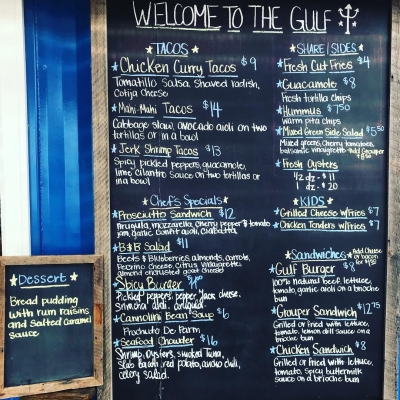 WELCOME TO THE GULF
TACOS
Chicken Curry Tacos $9
Tomatillo Salsa, shaved radish,
Cotija cheese
Mahi-Mahi Tacos $14
Cabbage slaw, avocado aioli on two
tortillas or in a bowl
Jerk Shrimp Tacos $13
Spicy pickled peppers, guacamole,
lime cilantro sauce on two tortillas or
in a bowl
Chef's Specials
Prosciutto Sandwich $12
Arugula, mozzarella, cherry pepper & tomato
jam, garlic confit aioli, ciabatta
B&B Salad $11
Beets & Blueberries, almonds, carrots,
Pecorino cheese, citrus vinaigrette,
almond encrusted goat cheese
Spicy Burger
Pickled peppers, pepper Jack cheese,
sriracha aioli, arugula
Cannolini Bean Soup $6
Prosciutto De Parm
Seafood Chowder $16
Shrimp, oysters, smoked Tuna,
Slab bacon, red potato, ancho chili,
celery salad.
SHARE SIDES
Fresh Cut Fries $4
Guacamole $8
Fresh tortilla chips
Hummus $7.50
Warm pita chips
Mixed Green Side Salad $5.50
Mixed greens, cherry tomatoes,
balsamic vinaigrette Add Grouper
Fresh Oysters
1/2 dz - $11
1 dz - $20
KIDS
Grilled Cheese w/Fries $7
Chicken Tenders w/Fries $7
Sandwiches Add Cheese
or bacon
Gulf Burger $8
100% natural beef, lettuce,
tomato, garlic aioli on a brioche
bun
Grouper Sandwich $12.75
Grilled or fried with lettuce,
tomato, lemon dill sauce on a
brioche bun
Chicken Sandwich $8
Grilled or fried with lettuce,
tomato, spicy buttermilk
sauce on a brioche bun
Dessert
Bread pudding
with rum raisins
and salted caramel
sauce